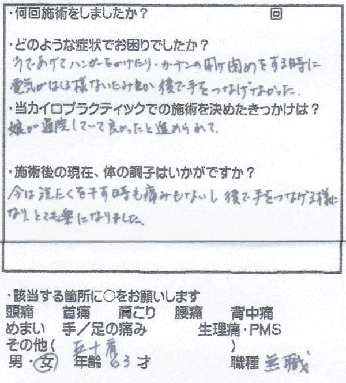 ・何回施術をしましたか？ 回
・どのような症状でお困りでしたか？
うであげてハンガーをかけたり、カーテンの開け閉めをする時に
電気がはしる様ないたみ 後で手をつなげなかった。
・当カイロプラクティックでの施術を決めたきっかけは？
娘が通院していて良かったと進められて。
・施術後の現在、体の調子はいかがですか？
今は洗たくを干す時も痛みもないし後で手をつなげる様に
なり、とても楽になりました。
・該当する箇所に○をお願いします
頭痛 首痛 肩こり 腰痛 背中痛
めまい 手／足の痛み 生理痛・PMS
その他（ 五十肩 ）
男・女） 年齢 63 才 職種 無職